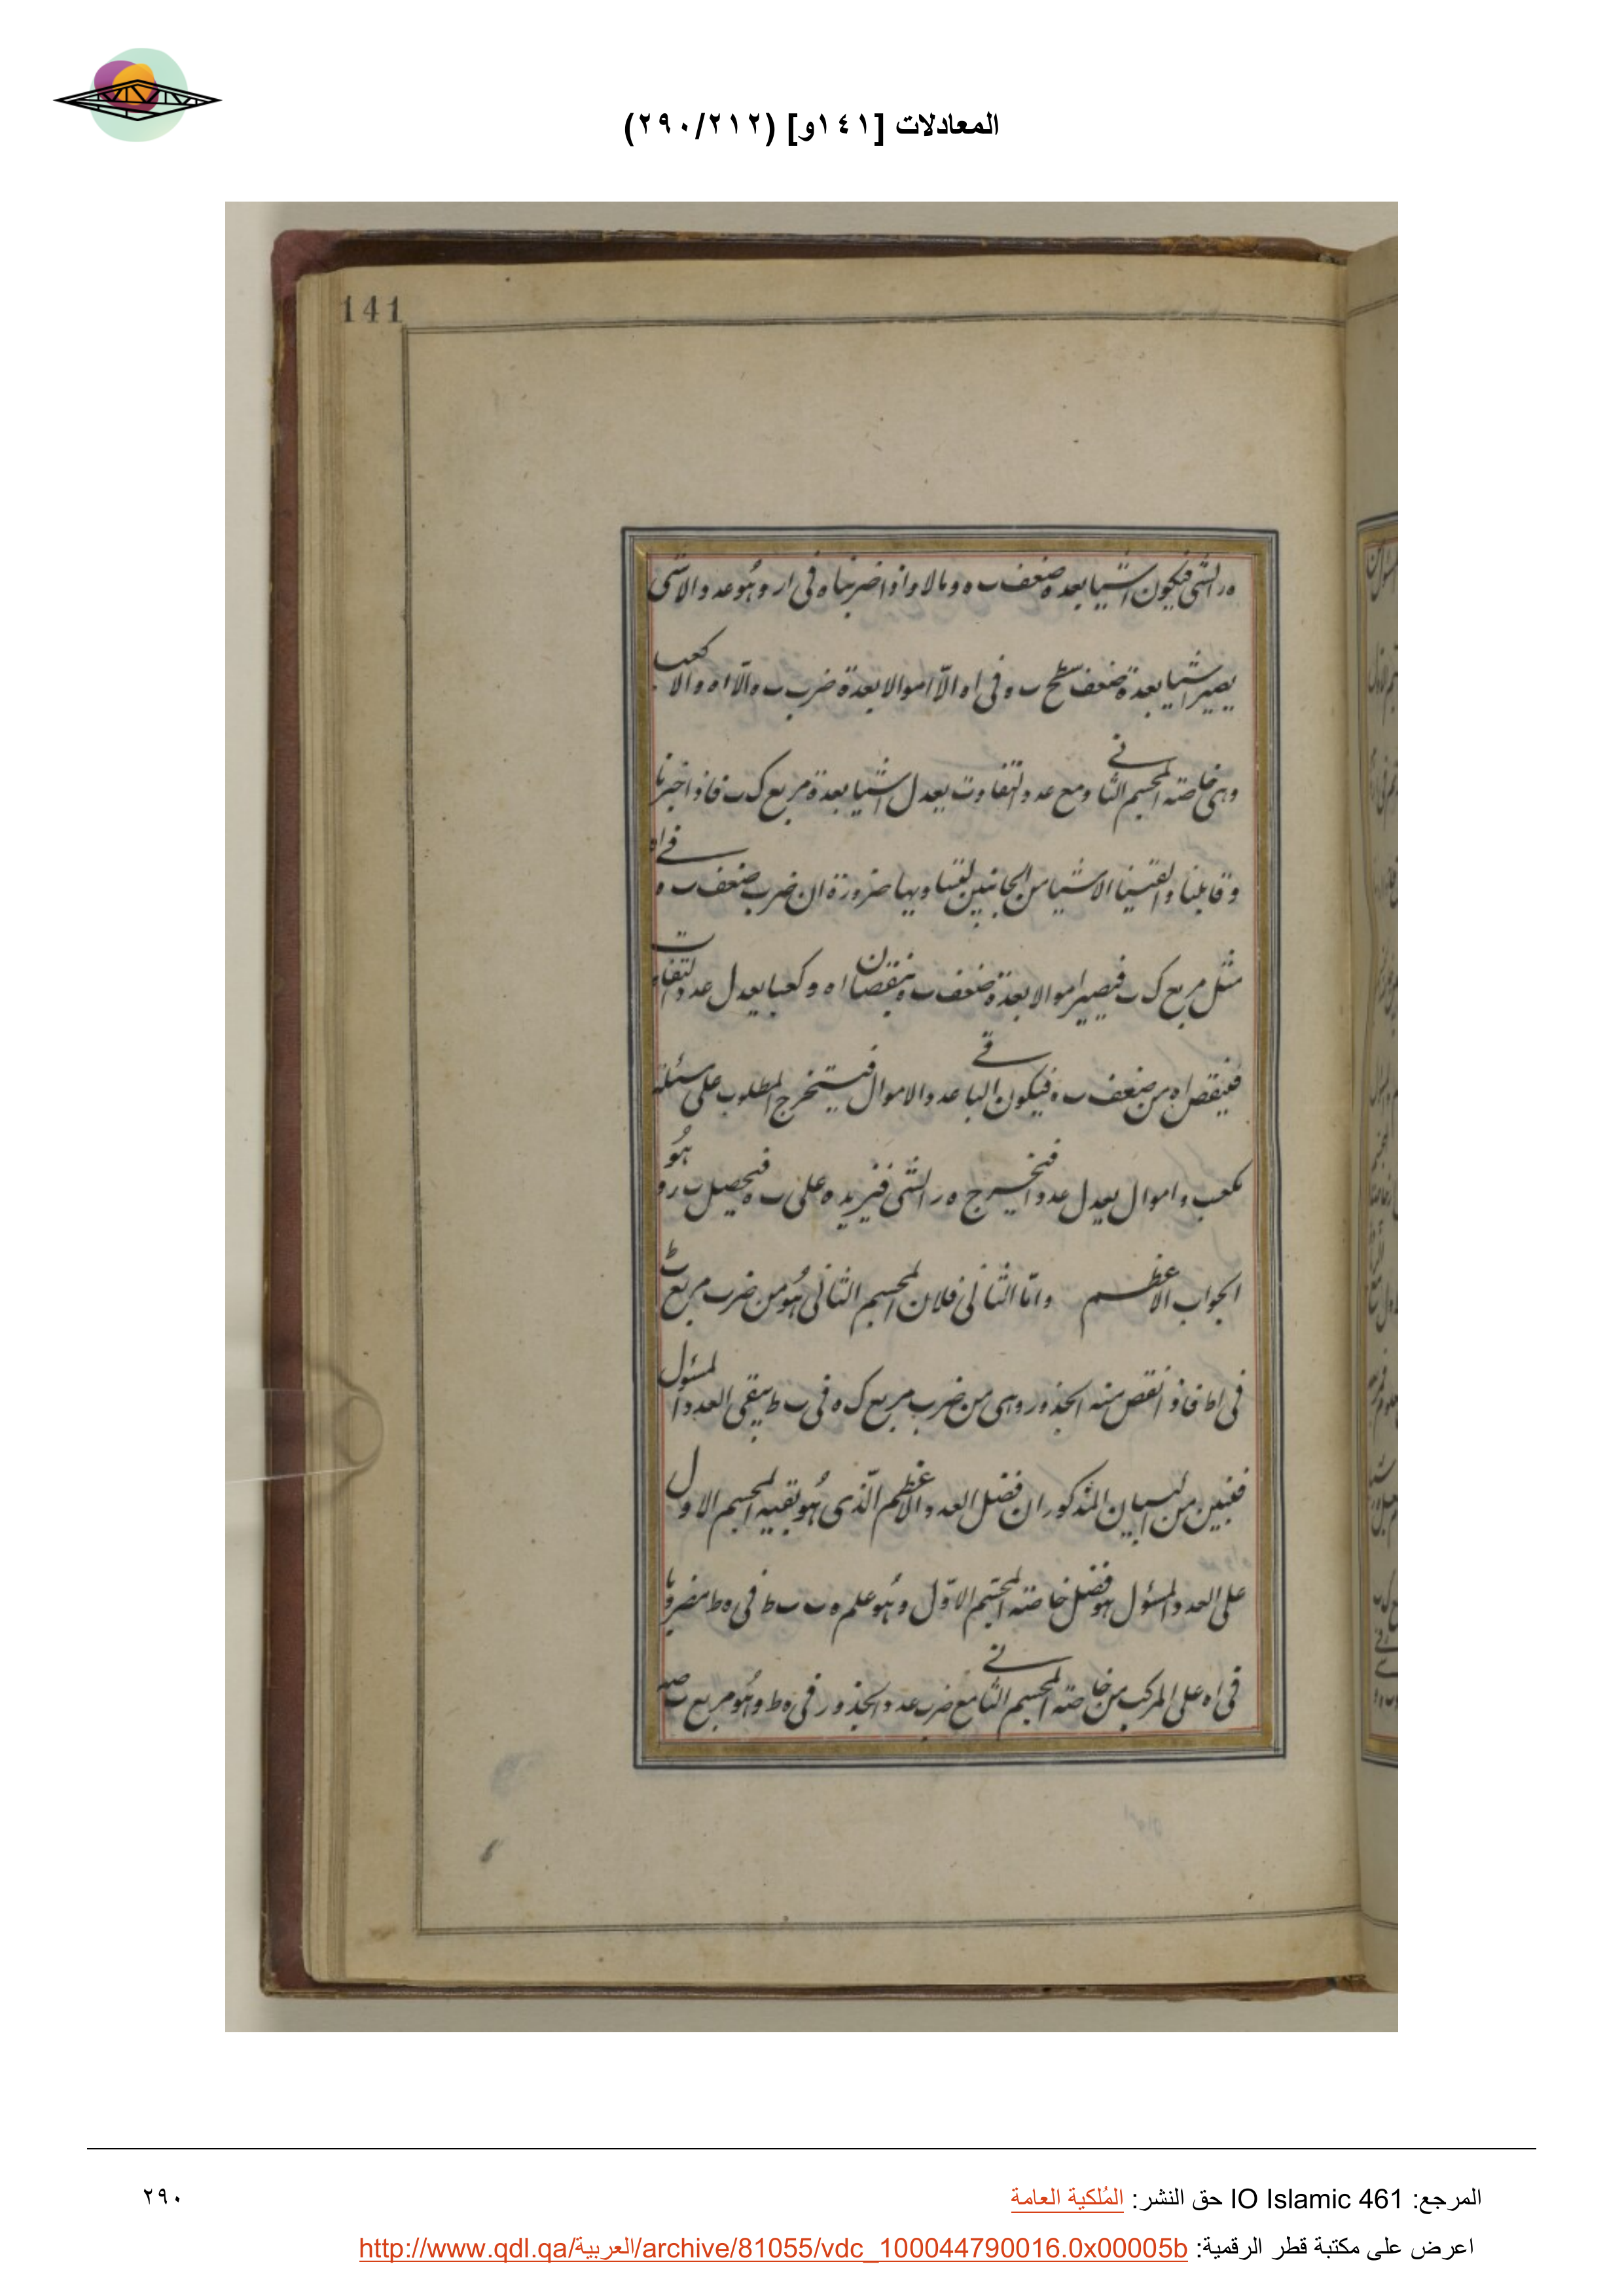 المعادلات [١٤١و] (٢٩٠/٢١٢)
141
ه ر الشی فیکون اشیا بعدة ضعف ب ه و مالا واذا ضربناه فی ا ر و هو عدد الا شی
یصیر اشیا بعدة ضعف سطح ب ه فی ا ه الّا اموالا بعدة ضرب ب ه والّا ا ه والا کعبا
وهی خاصته المجسم الثانی ومع عدد التفاوت یعدل اشیا بعدة مربع ک ب فاذا اجبرنا
وقابلنا والقینا الاشیا من الجانبین لتساویهما ضرورة ان ضرب ضعف ب ه فی ا ه
مثل مربع ک ب فیصیر اموالا بعدة ضعف ب ه بنقصان ا ه و کعبا یعدل عدد التفاوت
فینقص ا ه من ضعف ب ه فیکون الباقی عدد الاموال فیستخرج المطلوب علی مسئلة
کعب و اموال یعدل عددا فیخرج ه ر الشی فنزیده علی ب ه فیحصل ب ر وهو
الجواب الاعظم وامّا الثانی فلان المجسم الثانی هو من ضرب مربع ب ط
فی ا ط فاذا نقص منه الجذور وهی من ضرب مربع ک ه فی ب ط یبقی العدد المسئول
فتبین من البیان المذکور ان فضل العدد الاعظم الّذی هو بقیه المجسم الاول
علی العدد المسئول هو فضل خاصته المجسّم الاوّل وهو علم ه ب ب ط فی ه ط مضروبا
فی ا ه علی المرکب من خاصته المجسم الثانی مع ضرب عدد الجذور فی ه ط وهو مربع ب ص
المرجع: IO Islamic 461 حق النشر: المُلكية العامة
٢٩٠
اعرض على مكتبة قطر الرقمية: http://www.qdl.qa/العربية/archive/81055/vdc_100044790016.0x00005b